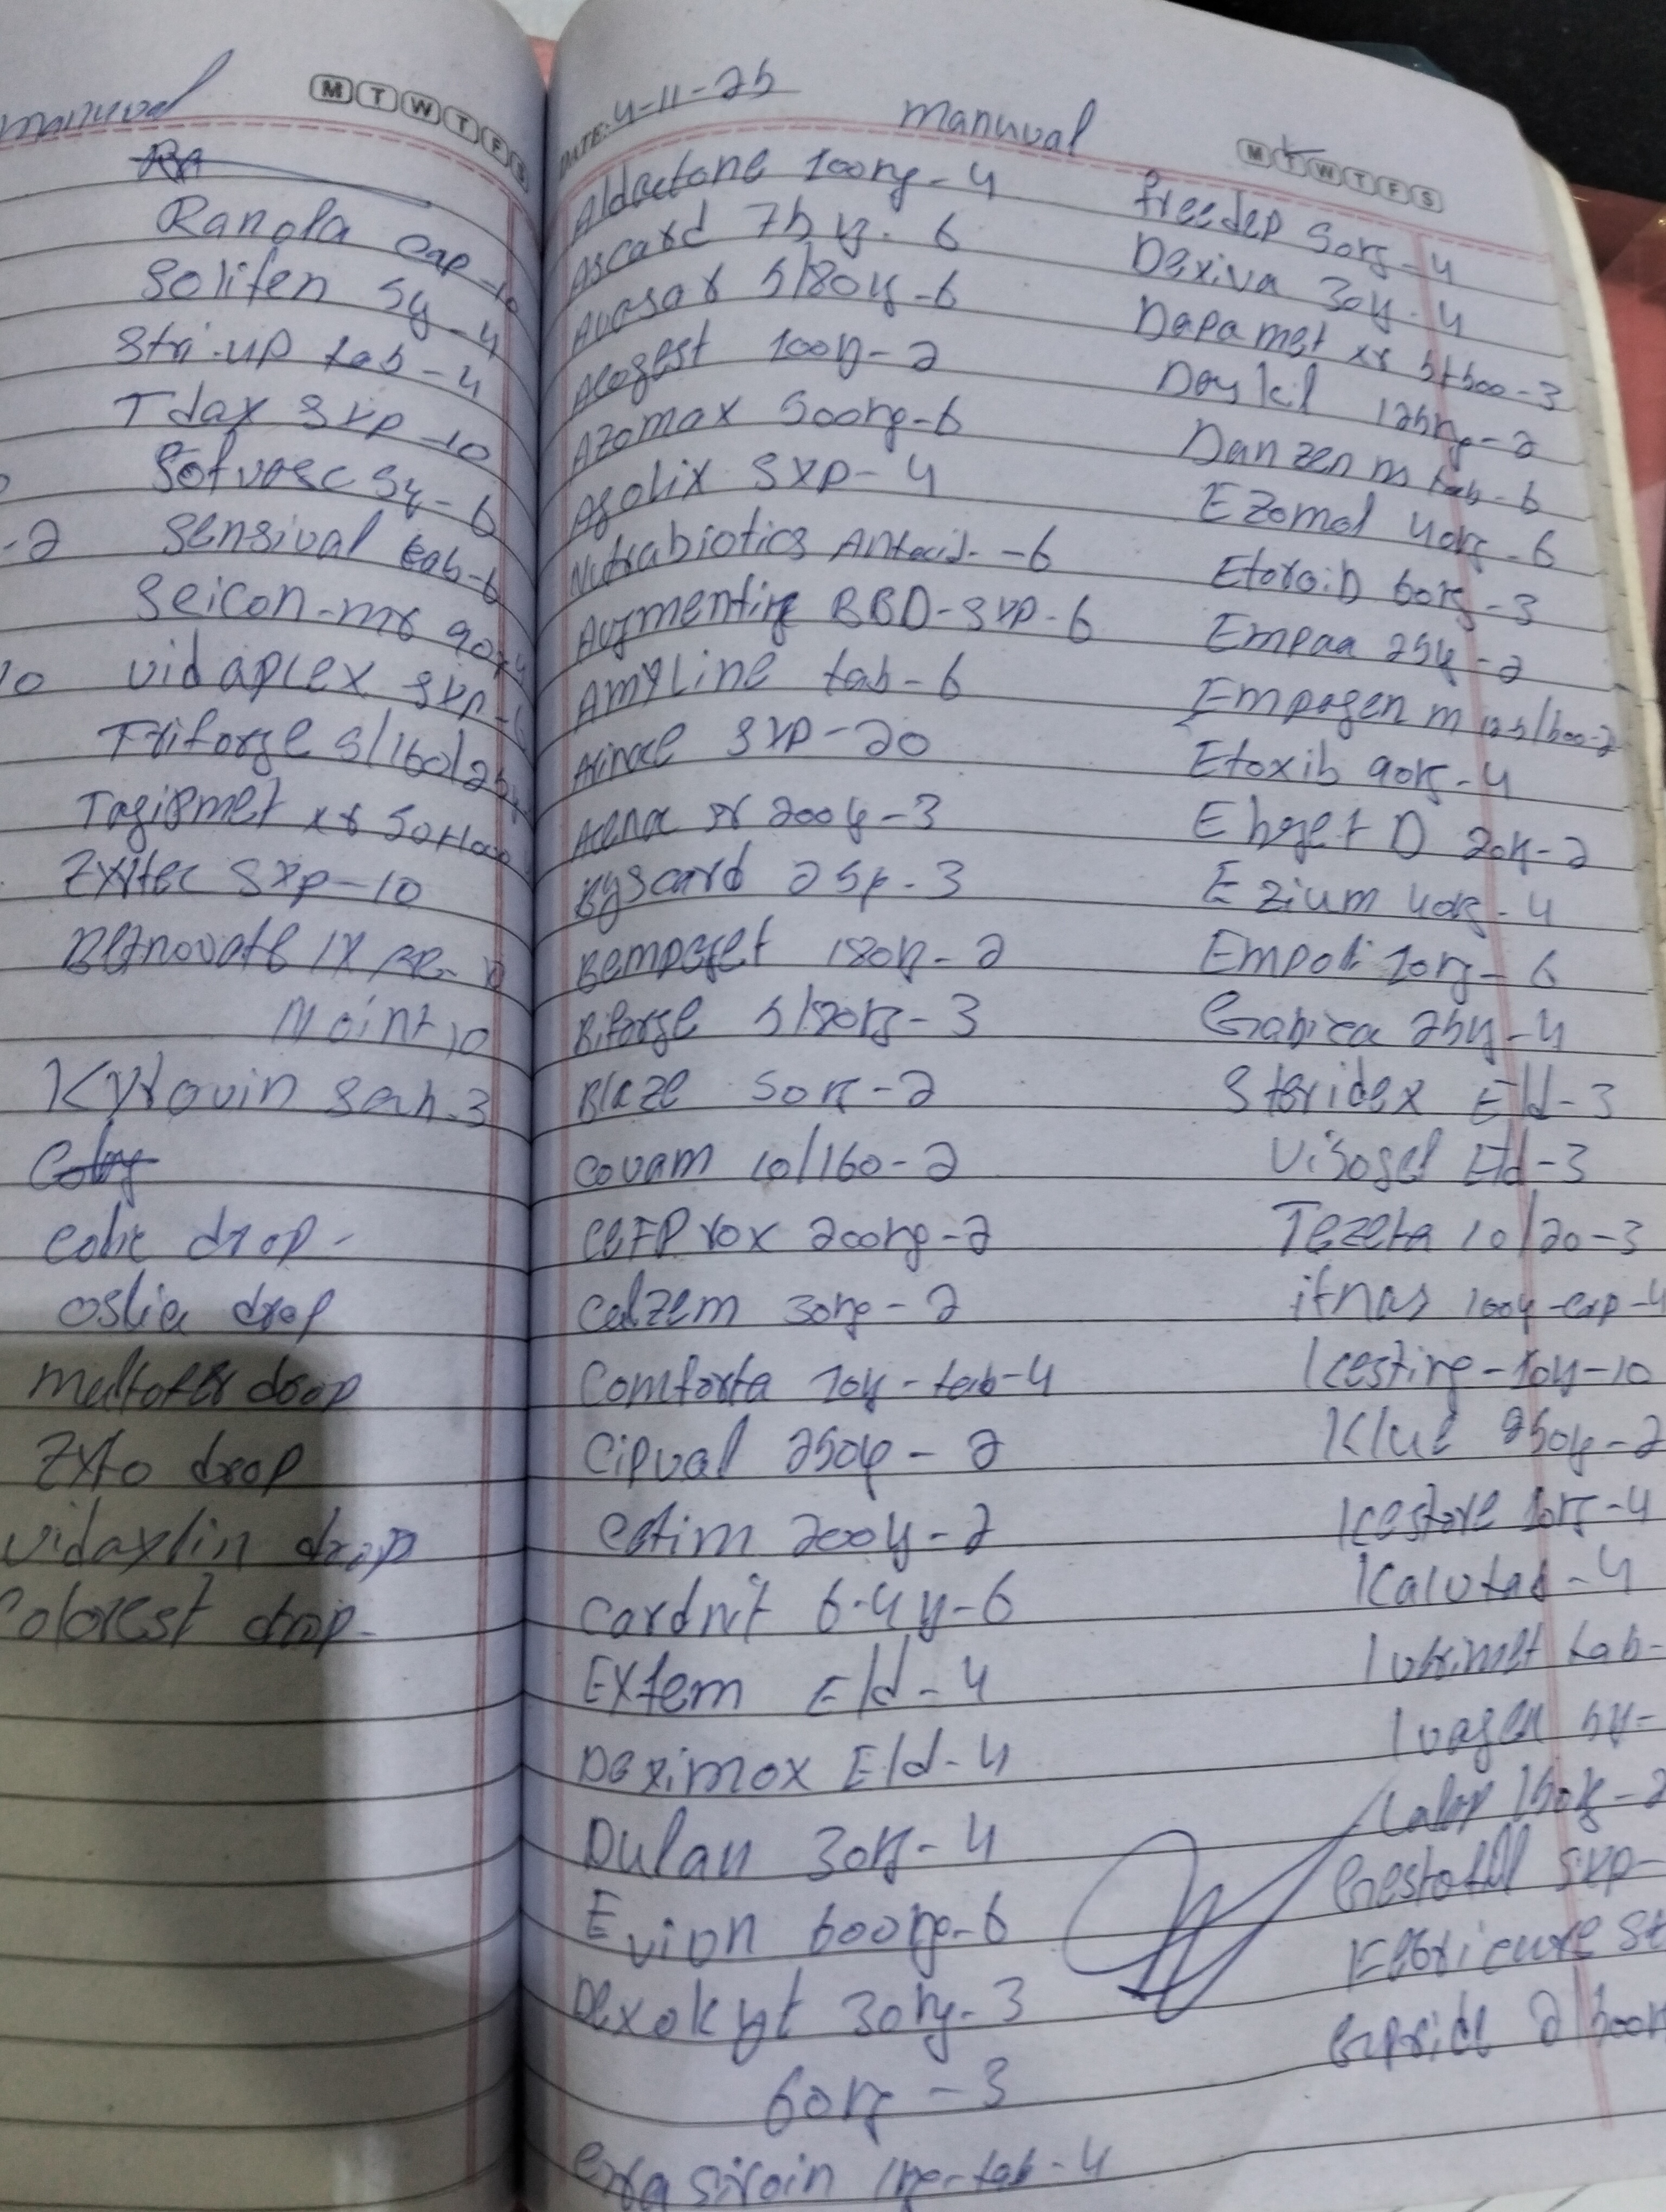 manuval
M T W T F S
Ranola cap-10
Solifen 5y-4
Stri-up tab-4
Tdax syp-10
Sofvasc 5y-6
-2
Sensival tab-6
Seicon-mr 90y
10
vidaplex syp-
Triforge 5/160/25
Tagipmet xr 50+1000
Zyrtec syp-10
Betnovate
N oint 10
Kyrovin sach-3
colic drop-
oslia drop
maltofer drop
Zyto drop
vidaylin drop
Colorest drop-
DATE: 4-11-25
manuval
M T W T F S
Aldactone 100mg-4
Ascard 75y-6
Avasar 5/80y-6
Alogest 100y-2
Azomax 500mg-6
Agolix syp-4
Nutrabiotics Antacid-6
Augmentine BBD-syp-6
Amyline tab-6
syp-20
Acena sr 200y-3
Byscard 25y-3
Bempaget 180y-2
Biforge 5/80mg-3
Blaze 50mg-2
Covam 10/160-2
CEFProx 200mg-2
Calzem 30mg-2
Comforta 10y-tab-4
Cipval 250y-2
Cefim 200y-2
Cardnit 6.4y-6
Extem E/d-4
Deximox E/d-4
Dulan 30mg-4
Evion 600mg-6
Dexokyt 30mg-3
60mg-3
tab-4
freedep 50mg-4
Dexiva 30y-4
Dapa met xr 5+500-3
Daykil 125mg-2
Danzen m tab-6
Ezomol 40mg-6
Etoroid 60mg-3
Empaa 25y-2
Empagen m 12.5/500-2
Etoxib 90mg-4
Ebget D 20y-2
Ezium 40mg-4
Empoli 10mg-6
Gabica 25y-4
Steridex E/d-3
Visogel E/d-3
Tezeta 10/20-3
itnas 100y-cap-4
Kestine-10y-10
Klue 250y-2
Kestore 10mg-4
Kalutab-4
tab-
Ivagen 5y-
150y-2
Gestofil syp-
Febricure
Gpride 2/500